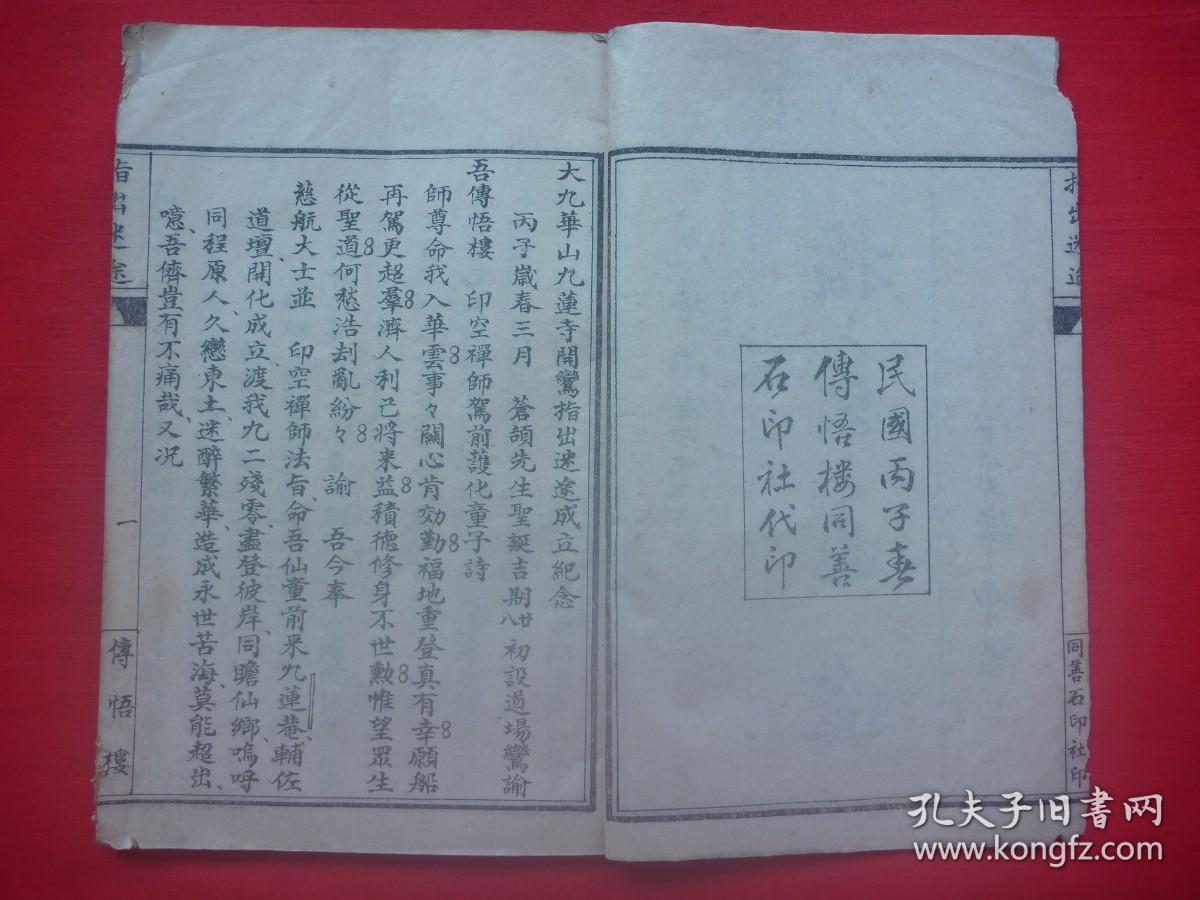 指出迷途
民國丙子春
傳悟樓同善
石印社代印
同善石印社印
大九華山九蓮寺開鸞指出迷途成立紀念
丙子歲春三月　蒼頡先生聖誕吉期廿八初設道場鸞諭
吾傳悟樓　印空禪師駕前護化童子詩
師尊命我入華雲事々關心肯効勤福地重登真有幸願船
再駕更超羣濟人利己將來益積德修身不世勲惟望眾生
從聖道何愁浩刦亂紛々　諭　吾今奉
慈航大士並　印空禪師法旨、命吾仙童前来九蓮菴、輔佐
道壇、開化成立、渡我九二殘零、盡登彼岸、同瞻仙鄉、嗚呼
同程原人、久戀東土、迷醉繁華、造成永世苦海、莫能超出、
噫、吾儕豈有不痛哉、又况
指出迷途
一
傳悟樓
孔夫子旧书网
www.kongfz.com